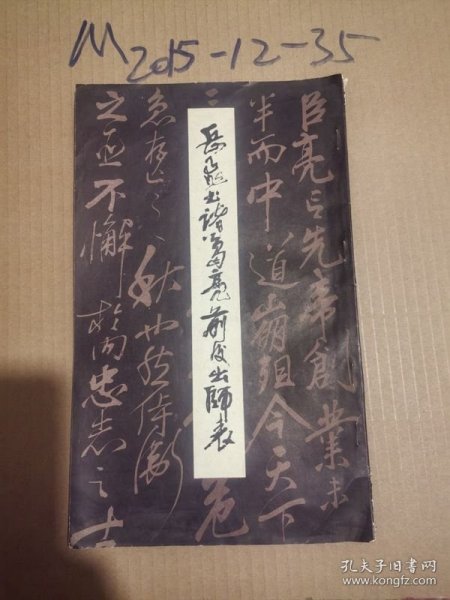 M2015-12-35
岳飛書諸葛亮前後出師表
臣亮言先帝創業未
半而中道崩殂今天下
三
危
急存亡之秋也然侍衛
之臣不懈於内忠志之士
孔夫子旧书网
www.kongfz.com